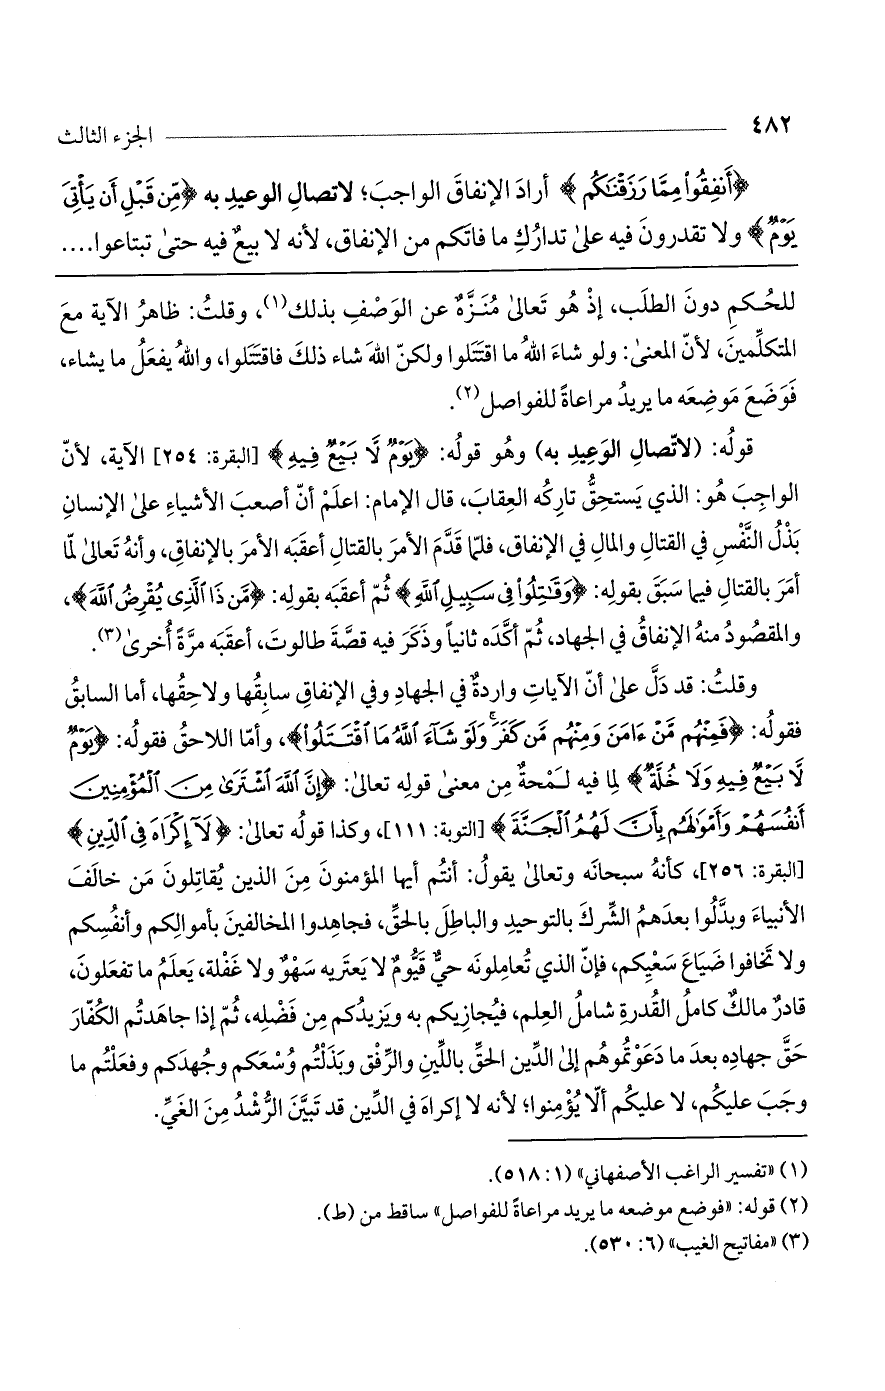 ٤٨٢ الجزء الثالث
﴿أَنفِقُوا۟ مِمَّا رَزَقْنَـٰكُم﴾ أرادَ الإنفاقَ الواجبَ؛ لاتصالِ الوعيدِ به ﴿مِّن قَبْلِ أَن يَأْتِىَ
يَوْمٌ﴾ ولا تقدرونَ فيه علىٰ تدارُكِ ما فاتَكم من الإنفاق، لأنه لا بيعٌ فيه حتىٰ تبتاعوا....
للحُكمِ دونَ الطلَب، إذْ هُو تَعالىٰ مُنَزَّهٌ عن الوَصْفِ بذلك(١)، وقلتُ: ظاهرُ الآية معَ
المتكلِّمينَ، لأنّ المعنىٰ: ولو شاءَ اللهُ ما اقتَتَلوا ولكنّ اللهَ شاء ذلكَ فاقتَتَلوا، واللهُ يفعَلُ ما يشاء،
فَوَضَعَ مَوضِعَه ما يريدُ مراعاةً للفواصل(٢).
قولُه: (لاتّصالِ الوَعِيدِ به) وهُو قولُه: ﴿يَوْمٌ لَّا بَيْعٌ فِيهِ﴾ [البقرة: ٢٥٤] الآية، لأنّ
الواجِبَ هُو: الذي يَستحِقُّ تارِكُه العِقابَ، قال الإمام: اعلَمْ أنّ أصعبَ الأشياءِ علىٰ الإنسانِ
بَذْلُ النَّفْسِ في القتالِ والمالِ في الإنفاق، فلمّا قَدَّمَ الأمرَ بالقتالِ أعقَبَه الأمرَ بالإنفاقِ، وأنهُ تَعالىٰ لمّا
أمَرَ بالقتالِ فيما سَبَقَ بقولِه: ﴿وَقَـٰتِلُوا۟ فِى سَبِيلِ ٱللَّهِ﴾ ثُمّ أعقَبَه بقولِه: ﴿مَّن ذَا ٱلَّذِى يُقْرِضُ ٱللَّهَ﴾،
والمقصُودُ منهُ الإنفاقُ في الجهاد، ثُمّ أكَّدَه ثانياً وذَكَرَ فيه قصَّةَ طالوتَ، أعقَبَه مرَّةً أُخرىٰ(٣).
وقلتُ: قد دَلَّ علىٰ أنّ الآياتِ واردةٌ في الجهادِ وفي الإنفاقِ سابِقُها ولاحِقُها، أما السابقُ
فقولُه: ﴿فَمِنْهُم مَّنْ ءَامَنَ وَمِنْهُم مَّن كَفَرَ ۚ وَلَوْ شَآءَ ٱللَّهُ مَا ٱقْتَتَلُوا۟﴾، وأمّا اللاحقُ فقولُه: ﴿يَوْمٌ
لَّا بَيْعٌ فِيهِ وَلَا خُلَّةٌ﴾ لِما فيه لَـمْحةٌ مِن معنىٰ قولِه تعالىٰ: ﴿إِنَّ ٱللَّهَ ٱشْتَرَىٰ مِنَ ٱلْمُؤْمِنِينَ
أَنفُسَهُمْ وَأَمْوَٰلَهُم بِأَنَّ لَهُمُ ٱلْجَنَّةَ﴾ [التوبة: ١١١]، وكذا قولُه تعالىٰ: ﴿لَآ إِكْرَاهَ فِى ٱلدِّينِ﴾
[البقرة: ٢٥٦]، كأنهُ سبحانَه وتعالىٰ يقولُ: أنتُم أيها المؤمنونَ مِنَ الذين يُقاتِلونَ مَن خالَفَ
الأنبياءَ وبدَّلُوا بعدَهمُ الشِّركَ بالتوحيدِ والباطِلَ بالحقِّ، فجاهِدوا المخالفينَ بأموالِكم وأنفُسِكم
ولا تَخافوا ضَيَاعَ سَعْيِكم، فإنّ الذي تُعامِلونَه حيٌّ قَيُّومٌ لا يَعتَريه سَهْوٌ ولا غَفْلة، يَعلَمُ ما تفعَلونَ،
قادرٌ مالكٌ كاملُ القُدرةِ شاملُ العِلم، فيُجازيكم به ويَزيدُكم مِن فَضْلِه، ثُمّ إذا جاهَدتُم الكُفّارَ
حَقَّ جهادِه بعدَ ما دَعَوْتُموهُم إلىٰ الدِّين الحقِّ باللِّينِ والرِّفْقِ وبَذَلْتُم وُسْعَكم وجُهدَكم وفعَلْتُم ما
وجَبَ عليكُم، لا عليكُم ألّا يُؤْمِنوا؛ لأنه لا إكراهَ في الدِّين قد تَبيَّنَ الرُّشْدُ مِنَ الغَيِّ.
(١) «تفسير الراغب الأصفهاني» (١: ٥١٨).
(٢) قوله: «فوضع موضعه ما يريد مراعاةً للفواصل» ساقط من (ط).
(٣) «مفاتيح الغيب» (٦: ٥٣٠).